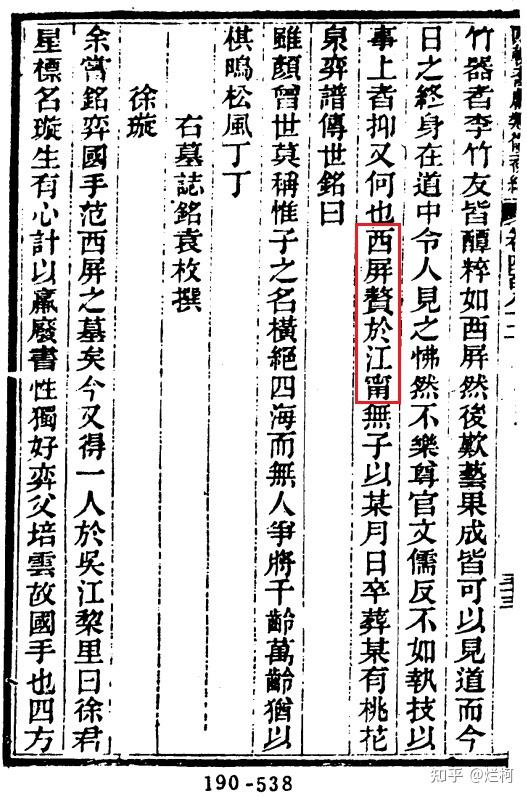 竹器者李竹友皆醰粹如西屏然後歎藝果成皆可以見道而今
日之終身在道中令人見之怫然不樂尊官文儒反不如執技以
事上者抑又何也西屏贅於江甯無子以某月日卒葬某有桃花
泉弈譜傳世銘曰
雖顏曾世莫稱惟子之名橫絕四海而無人爭將千齡萬齡猶以
棋鳴松風丁丁
右墓誌銘袁枚撰
徐璇
余嘗銘弈國手范西屏之墓矣今又得一人於吳江黎里曰徐君
星標名璇生有心計以羸廢書性獨好弈父培雲故國手也四方
190-538
知乎 @烂柯